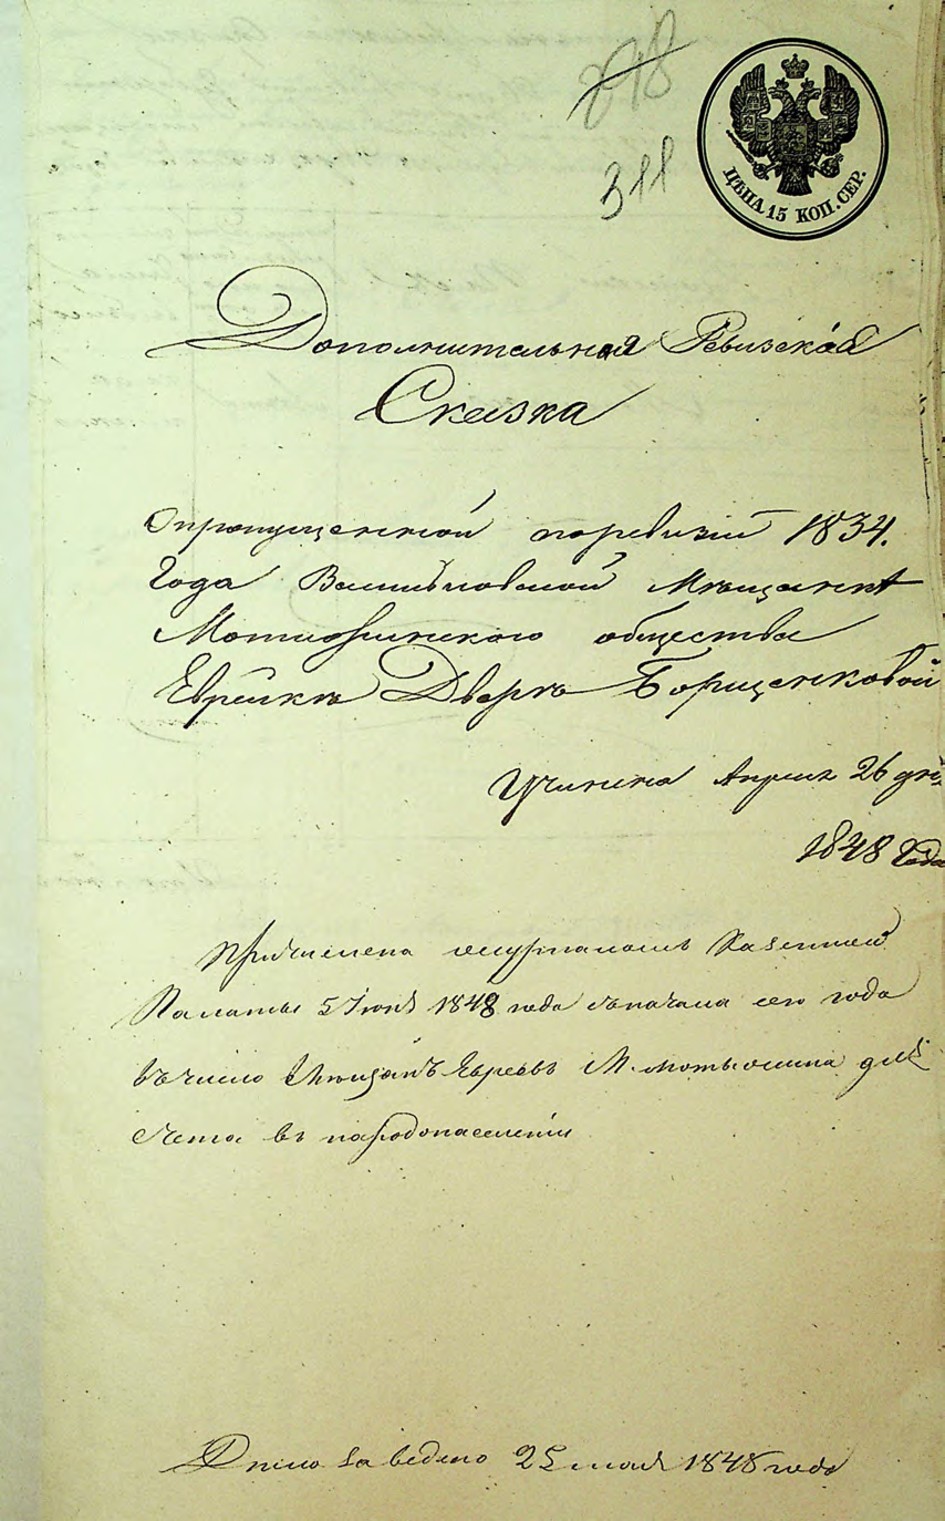 298
311
ЦѢНА 15 КОП. СЕР.
Дополнительная Ревизская
Сказка
Опропущенной поревизіи 1834.
Года Васильковской Мѣщанкѣ
Мотыжинского общества
Еврейкѣ Дверкѣ Борищенковой
Учинена Апреля 26 дня
1848 Года
Причислена Казенной
Палаты 5 Іюня 1848 года съначала сего года
въчисло Мѣщанъ Евреевъ М. Мотыжина для
счета въ народонаселеніи
Дѣло заведено 25 мая 1848 года